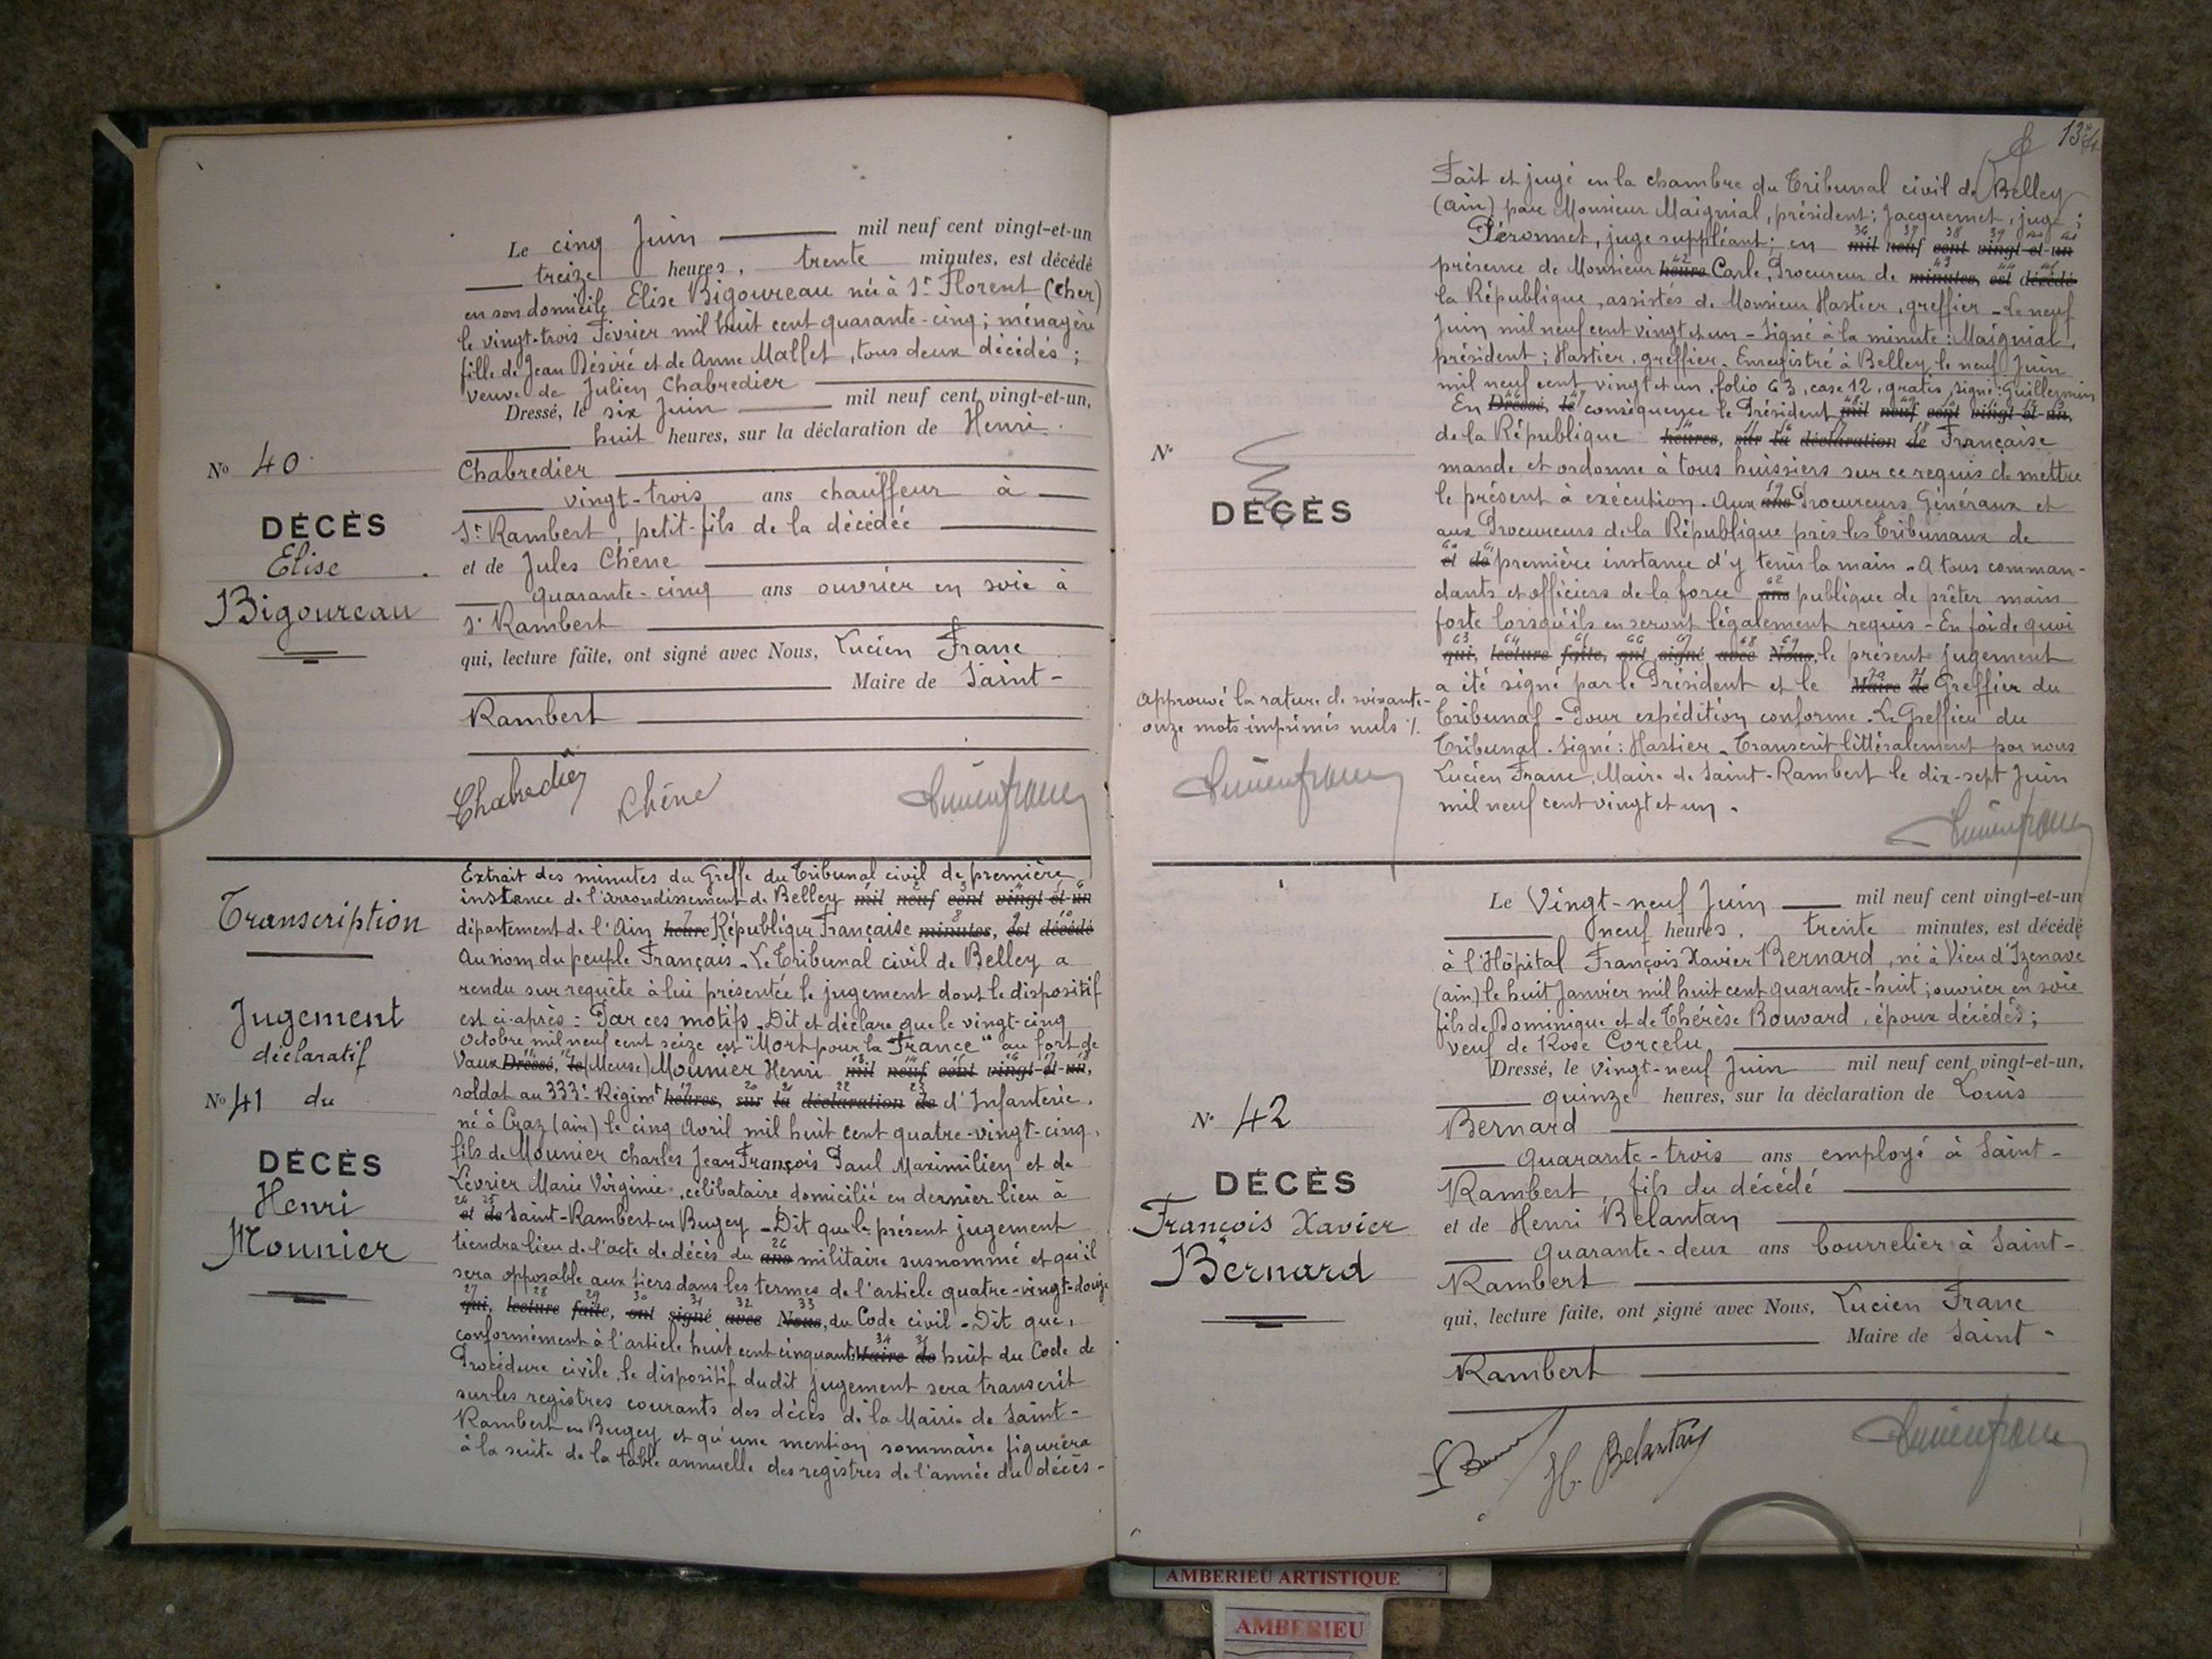 Le cinq Juin mil neuf cent vingt-et-un
treize heures, trente minutes, est décédé
en son domicile Elise Bigoureau née à St Florent (Cher)
le vingt-trois Février mil huit cent quarante-cinq ; ménagère
fille de Jean Désiré et de Anne Mallet, tous deux décédés ;
veuve de Julien Chabredier
Dressé, le six Juin mil neuf cent vingt-et-un,
huit heures, sur la déclaration de Henri
Chabredier
vingt-trois ans chauffeur à
St Rambert, petit-fils de la décédée
et de Jules Chêne
quarante-cinq ans ouvrier en soie à
St Rambert
qui, lecture faite, ont signé avec Nous, Lucien Franc
Maire de Saint-
Rambert
No 40
DÉCÈS
Elise
Bigoureau
Chabredier Chêne Lucienfranc
Transcription
Jugement
déclaratif
No 41 du
DÉCÈS
Henri
Mounier
Extrait des minutes du Greffe du Tribunal civil de première
instance de l'arrondissement de Belley mil neuf cent vingt-et-un
département de l'Ain heure République Française minutes, est décédé
Au nom du peuple Français - Le Tribunal civil de Belley a
rendu sur requête à lui présentée le jugement dont le dispositif
est ci-après : Par ces motifs - Dit et déclare que le vingt-cinq
Octobre mil neuf cent seize est "Mort pour la France" au fort de
Vaux Dressé, le (Meuse) Mounier Henri mil neuf cent vingt-et-un,
soldat au 333e Régimt heures, sur la déclaration de d'Infanterie,
né à Craz (ain) le cinq Avril mil huit cent quatre-vingt-cinq,
fils de Mounier Charles Jean François Paul Maximilien et de
Lévrier Marie Virginie, célibataire domicilié en dernier lieu à
et de Saint-Rambert en Bugey - Dit que le présent jugement
tiendra lieu de l'acte de décès du ans militaire susnommé et qu'il
sera opposable aux tiers dans les termes de l'article quatre-vingt-douze
qui, lecture faite, ont signé avec Nous, du Code civil - Dit que,
conformément à l'article huit cent cinquante Maire de huit du Code de
Procédure civile, le dispositif dudit jugement sera transcrit
sur les registres courants des décès de la Mairie de Saint-
Rambert en Bugey et qu'une mention sommaire figurera
à la suite de la table annuelle des registres de l'année du décès -
13
Fait et jugé en la chambre du Tribunal civil de Belley
(ain) par Monsieur Maignial, président ; Jacquemet, juge ;
Péronnet, juge suppléant ; en mil neuf cent vingt-et-un
présence de Monsieur heure Carle, Procureur de minutes, est décédé
la République, assistés de Monsieur Hastier, greffier - Le neuf
Juin mil neuf cent vingt et un - Signé à la minute : Maignial,
président ; Hastier, greffier - Enregistré à Belley le neuf Juin
mil neuf cent vingt et un, folio 63, case 12, gratis, signé : Guillermin
En Dressé, le conséquence le Président mil neuf cent vingt-et-un,
de la République heures, sur la déclaration de Française
mande et ordonne à tous huissiers sur ce requis de mettre
le présent à exécution. Aux ans Procureurs Généraux et
aux Procureurs de la République près les Tribunaux de
et de première instance d'y tenir la main - A tous comman-
dants et officiers de la force ans publique de prêter main
forte lorsqu'ils en seront légalement requis - En foi de quoi
qui, lecture faite, ont signé avec Nous, le présent jugement
a été signé par le Président et le Maire de Greffier du
Tribunal - Pour expédition conforme - Le Greffier du
Tribunal. Signé : Hastier - Transcrit littéralement par nous
Lucien Franc, Maire de Saint-Rambert le dix-sept Juin
mil neuf cent vingt et un.
No
DÉCÈS
Approuvé la rature de soixante-
onze mots imprimés nuls ./.
Lucienfranc Lucienfranc
Le Vingt-neuf Juin mil neuf cent vingt-et-un
neuf heures, trente minutes, est décédé
à l'Hôpital François Xavier Bernard, né à Vieu d'Izenave
(ain) le huit Janvier mil huit cent quarante-huit ; ouvrier en soie
fils de Dominique et de Thérèse Bouvard, époux décédés ;
veuf de Rose Corcelu
Dressé, le vingt-neuf Juin mil neuf cent vingt-et-un,
quinze heures, sur la déclaration de Louis
Bernard
quarante-trois ans employé à Saint-
Rambert, fils du décédé
et de Henri Belantan
quarante-deux ans bourrelier à Saint-
Rambert
qui, lecture faite, ont signé avec Nous, Lucien Franc
Maire de Saint-
Rambert
No 42
DÉCÈS
François Xavier
Bernard
H. Belantan Lucienfranc
AMBERIEU ARTISTIQUE
AMBERIEU